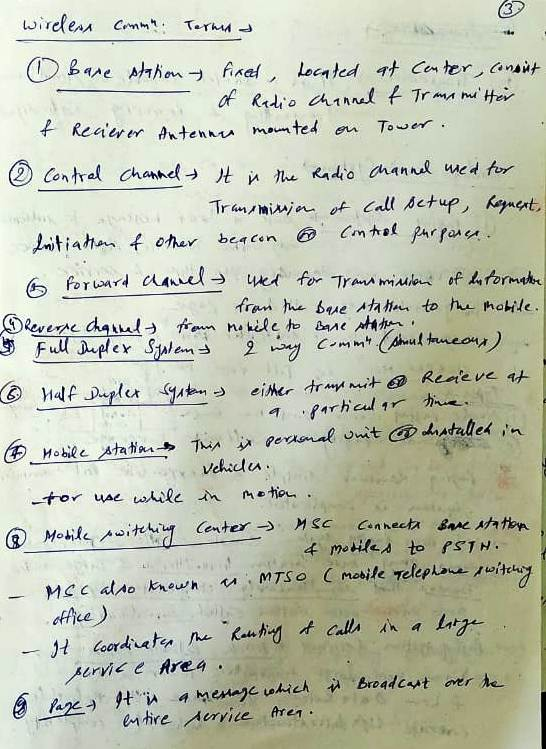 ③
Wireless Commⁿ: Terms →
① Base station → fixed, Located at Center, Consist
of Radio channel & Transmitter
& Reciever Antennas mounted on Tower.
② Control Channel → It is the Radio channel used for
Transmission of Call Setup, Request,
Initiation & other beacon or Control purposes.
③ Forward Channel → Used for Transmission of Information
from the Base station to the mobile.
④ Reverse Channel → from mobile to Base station.
⑤ Full Duplex System → 2 way Commⁿ (Simultaneous)
⑥ Half Duplex System → either transmit or Recieve at
a particular time.
⑦ Mobile station → This is personal unit or Installed in
vehicles.
- for use while in motion.
⑧ Mobile switching Center → MSC Connects Base station
& mobiles to PSTN.
- MSC also known as MTSO (mobile Telephone switching
office)
- It coordinates the Routing of calls in a large
service Area.
⑨ Page → It is a message which is Broadcast over the
entire service Area.